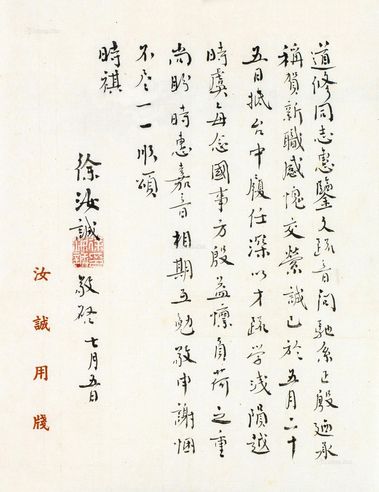 道修同志惠鑒久疏音問馳系正殷迺承
稱賀新職感愧交縈誠已於五月二十
五日抵台中履任深以才疏学淺隕越
時虞每念國事方殷益懍負荷之重
尚盼時惠嘉音相期互勉敬申謝悃
不尽一一順頌
時祺
徐汝誠
敬啓 七月五日
汝誠用牋